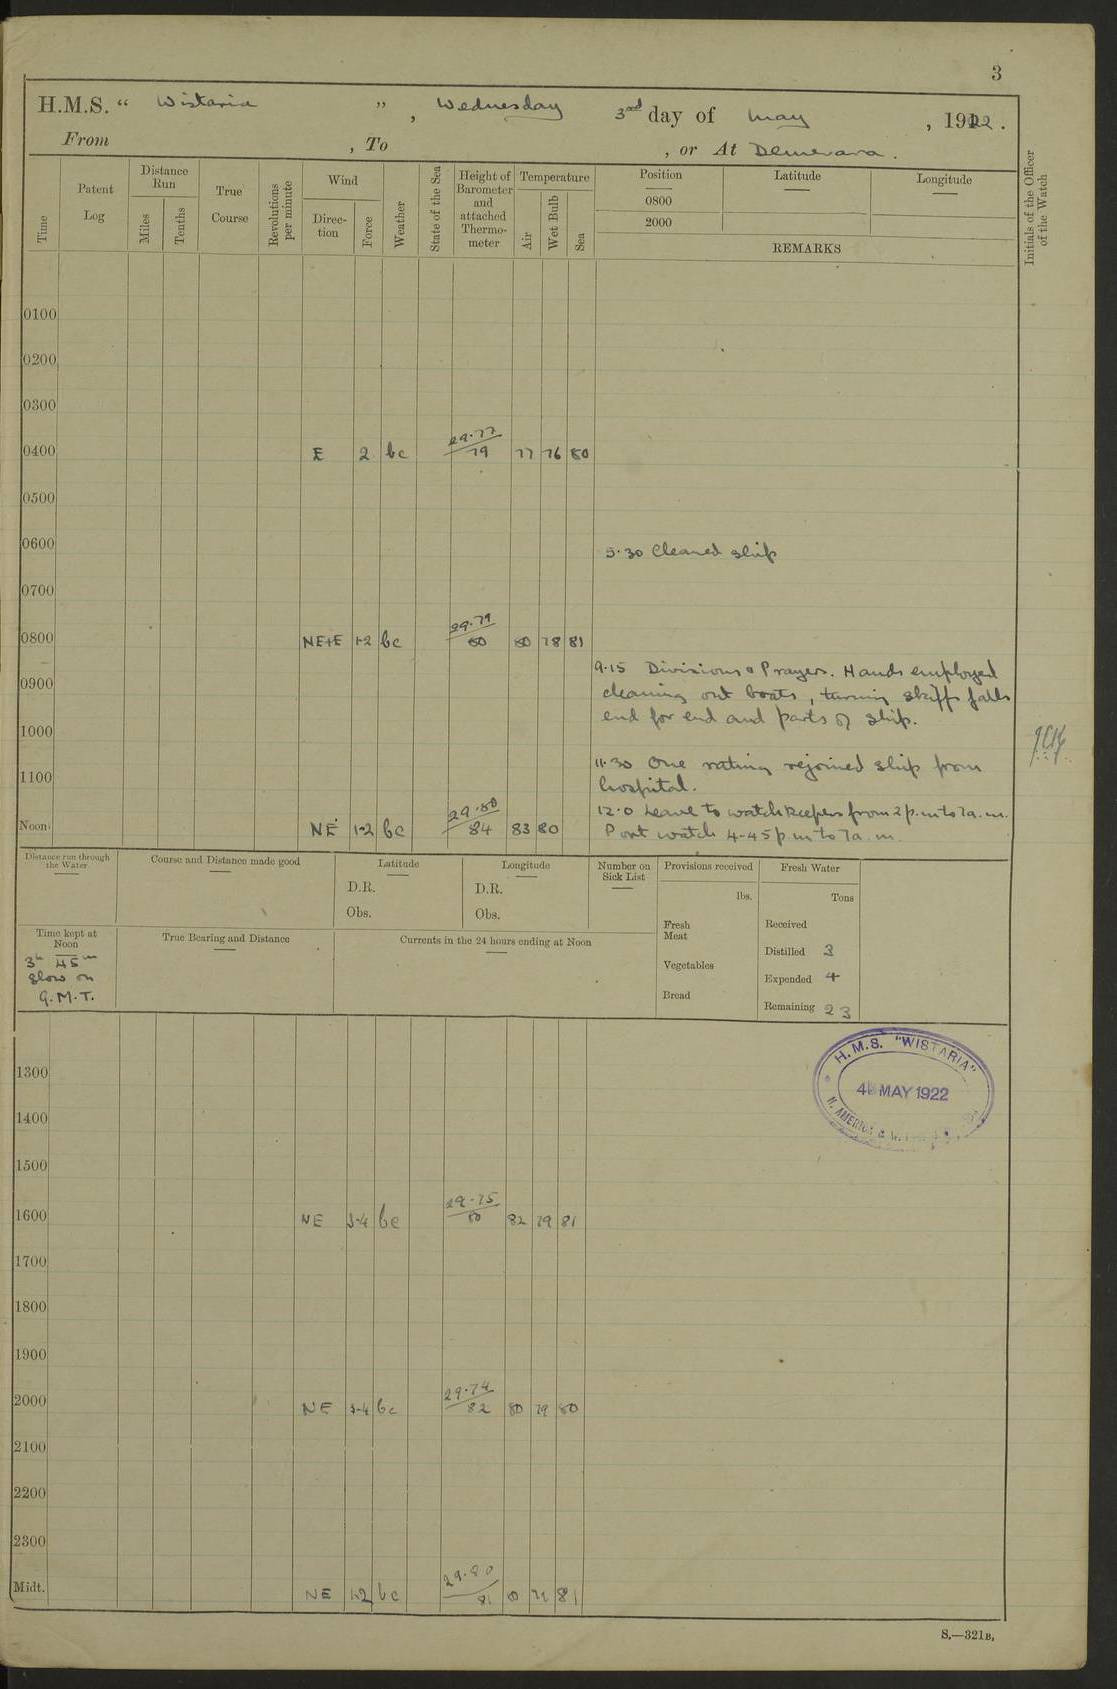 3
H.M.S. " Wistaria " , Wednesday 3rd day of May , 1922 .
From , To , or At Demerara .
Time
Patent Log
Distance Run
Miles
Tenths
True Course
Revolutions per minute
Wind
Direc-tion
Force
Weather
State of the Sea
Height of Barometer and attached Thermo-meter
Temperature
Air
Wet Bulb
Sea
Position
0800
2000
Latitude
Longitude
REMARKS
Initials of the Officer of the Watch
0100
0200
0300
0400 E 2 bc 29.77 79 77 76 80
0500
0600 5.30 Cleaned ship
0700
0800 NE+E 1-2 bc 29.79 80 80 78 81
9.15 Divisions & Prayers. Hands employed
0900 cleaning out boats, turning skiff falls
end for end and parts of ship.
1000
11.30 One rating rejoined ship from
1100 hospital.
12.0 Leave to watchkeepers from 2 p.m to 7 a.m.
Noon NE 1-2 bc 29.80 84 83 80 Port watch 4-45 p.m to 7 a.m.
Distance run through the Water
Course and Distance made good
Latitude
D.R.
Obs.
Longitude
D.R.
Obs.
Number on Sick List
Provisions received
lbs.
Fresh Meat
Vegetables
Bread
Fresh Water
Tons
Received
Distilled 3
Expended 4
Remaining 23
Time kept at Noon
3h 45m
slow on
G.M.T.
True Bearing and Distance
Currents in the 24 hours ending at Noon
H.M.S. "WISTARIA"
4 MAY 1922
N. AMERICA & W.
1300
1400
1500
1600 NE 3-4 bc 29.75 80 82 79 81
1700
1800
1900
2000 NE 3-4 bc 29.74 82 80 79 80
2100
2200
2300
Midt. NE 1-2 bc 29.80 81 81
S.—321B.